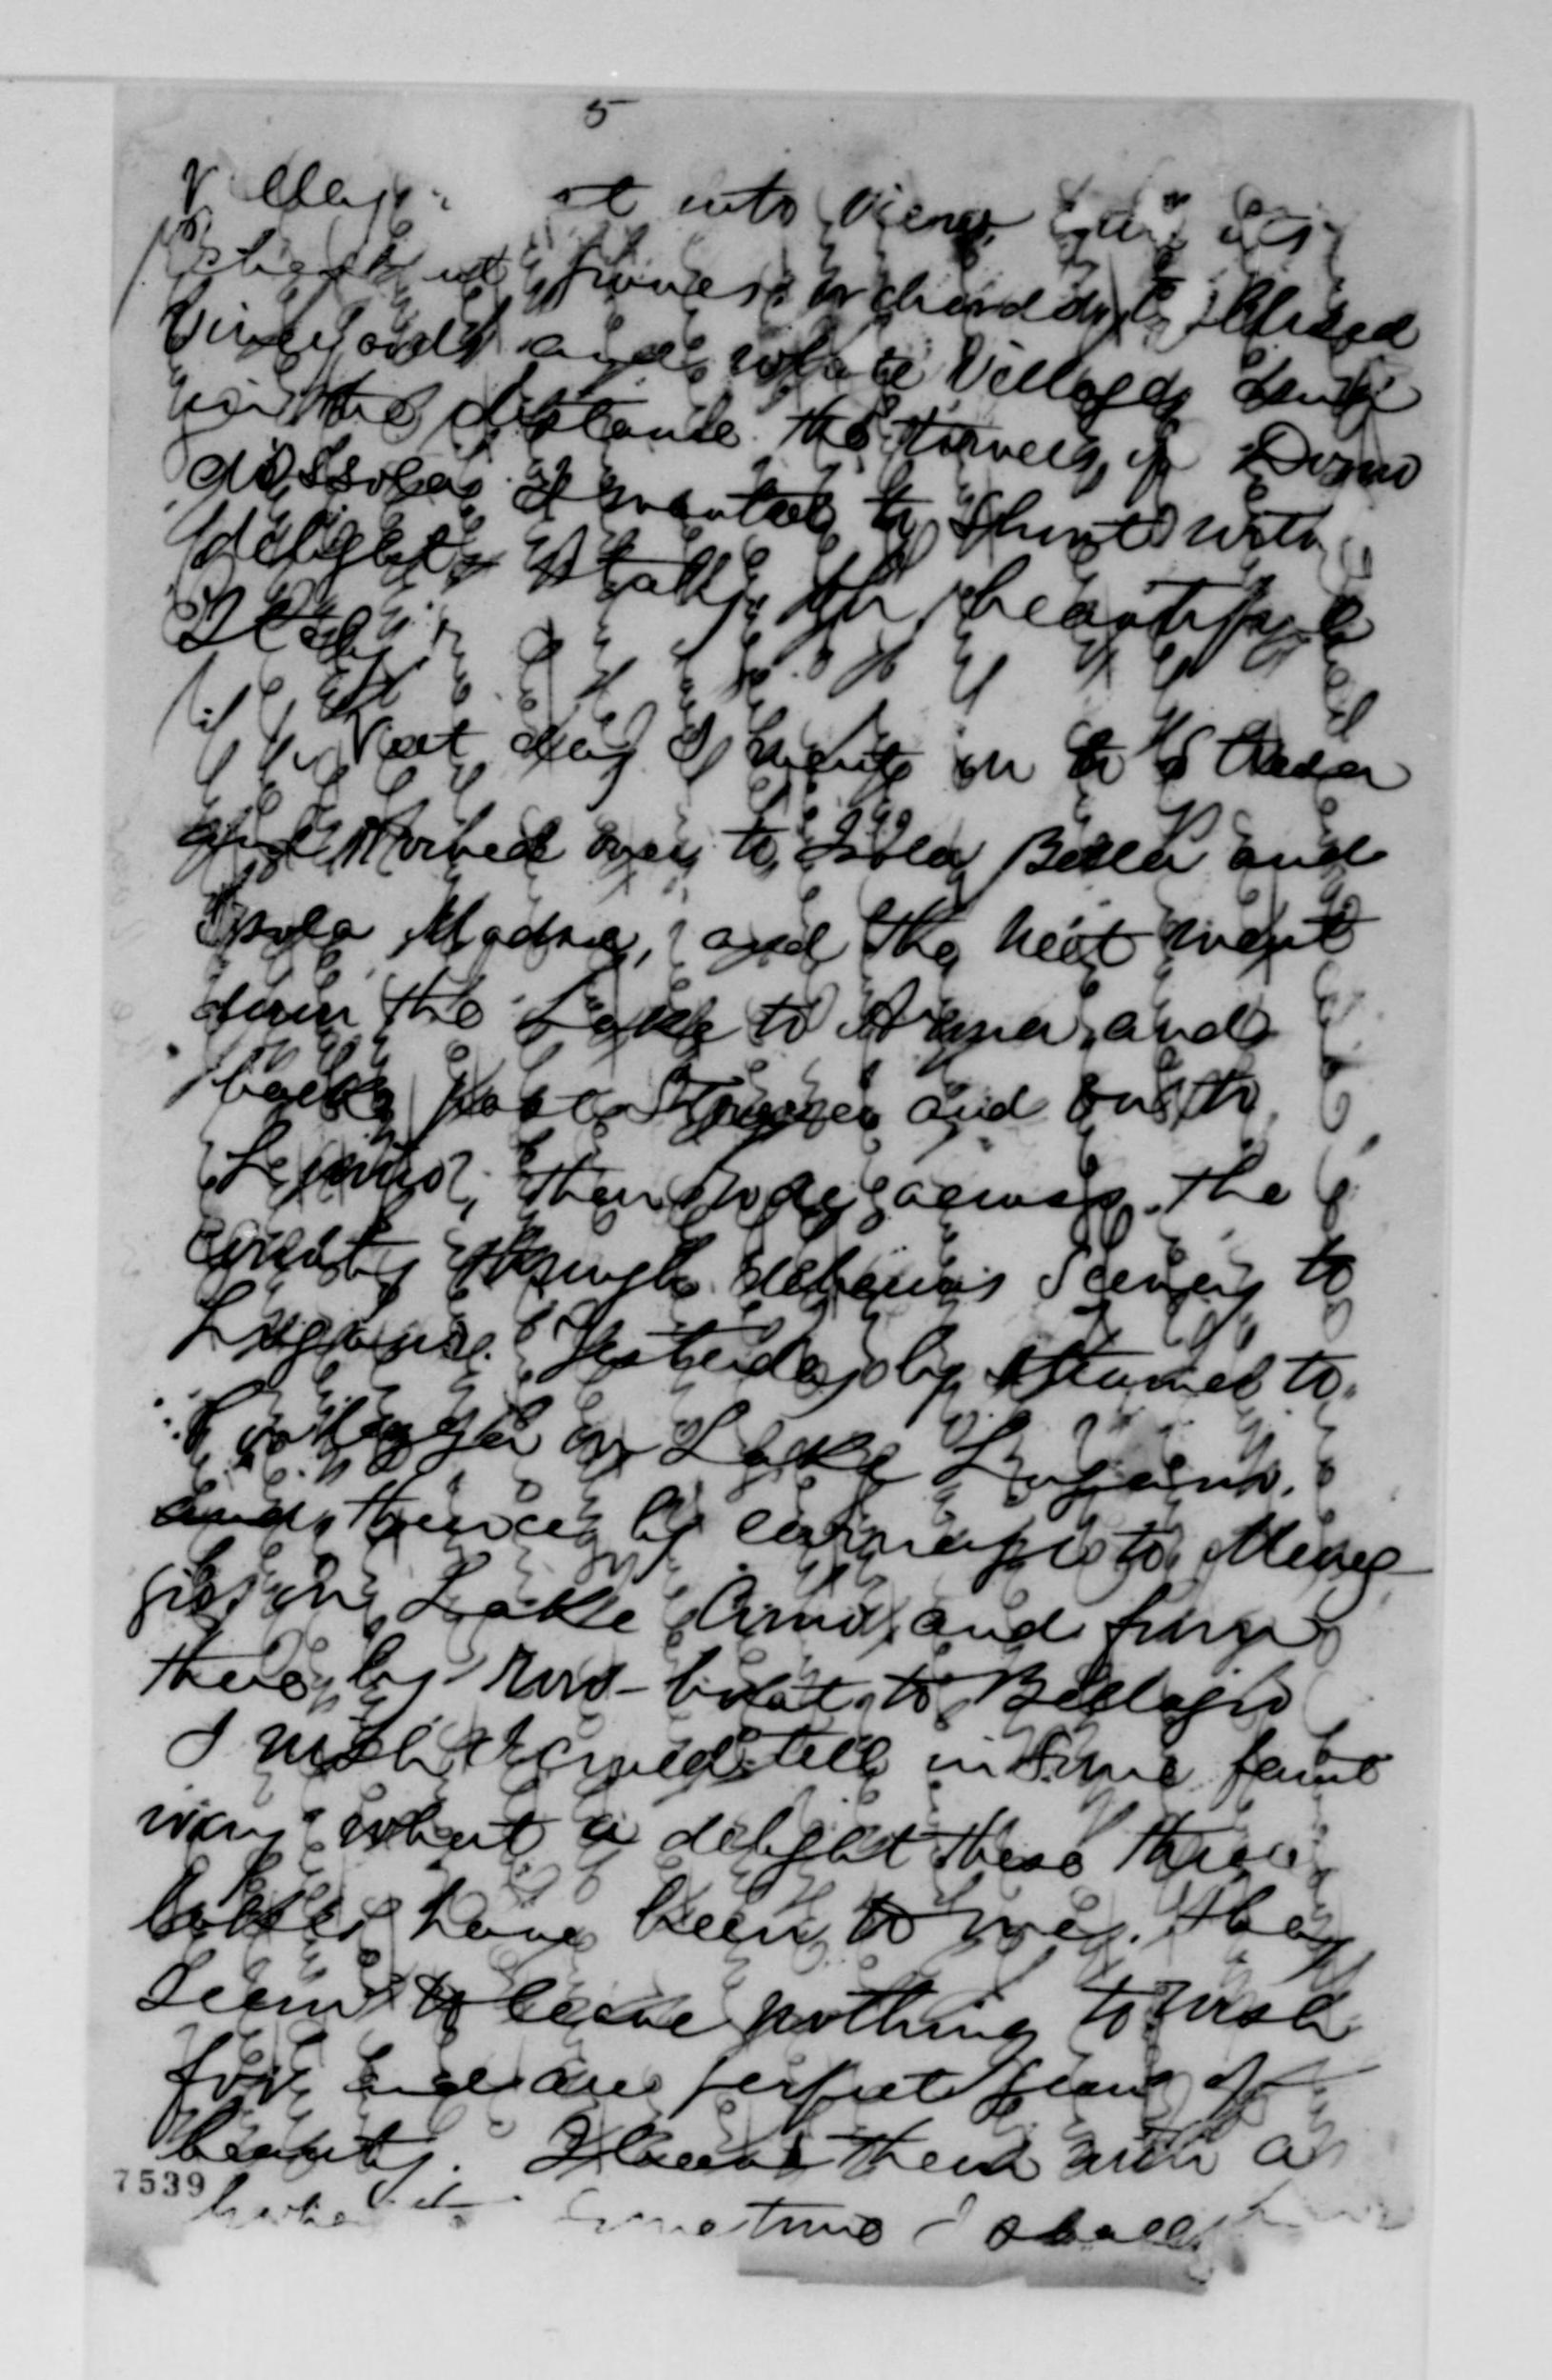 5
Village it into view
Chestnut groves orchards
Vineyards and white Villages and far
in the distance the towers of Domo
dossola. I wanted to shout with
delight. Italy, the beautiful
Italy
Next day I went on to Stresa
and rowed over to Isola Bella and
Isola Madre, and the next went
down the Lake to Arona and
back past Stresa and on to
Luino, then rode across the
country through delicious scenery to
Lugano. Yesterday by steamer to
Porlezza on Lake Lugano.
and thence by carriage to Menag-
gio on Lake Como and from
there by row-boat to Bellagio
I wish I could tell in some faint
way what a delight these three
Lakes have been to me. They
seem to leave nothing to wish
for and are perfect gems of
beauty. I leave them with a
hope that sometime I shall
7539